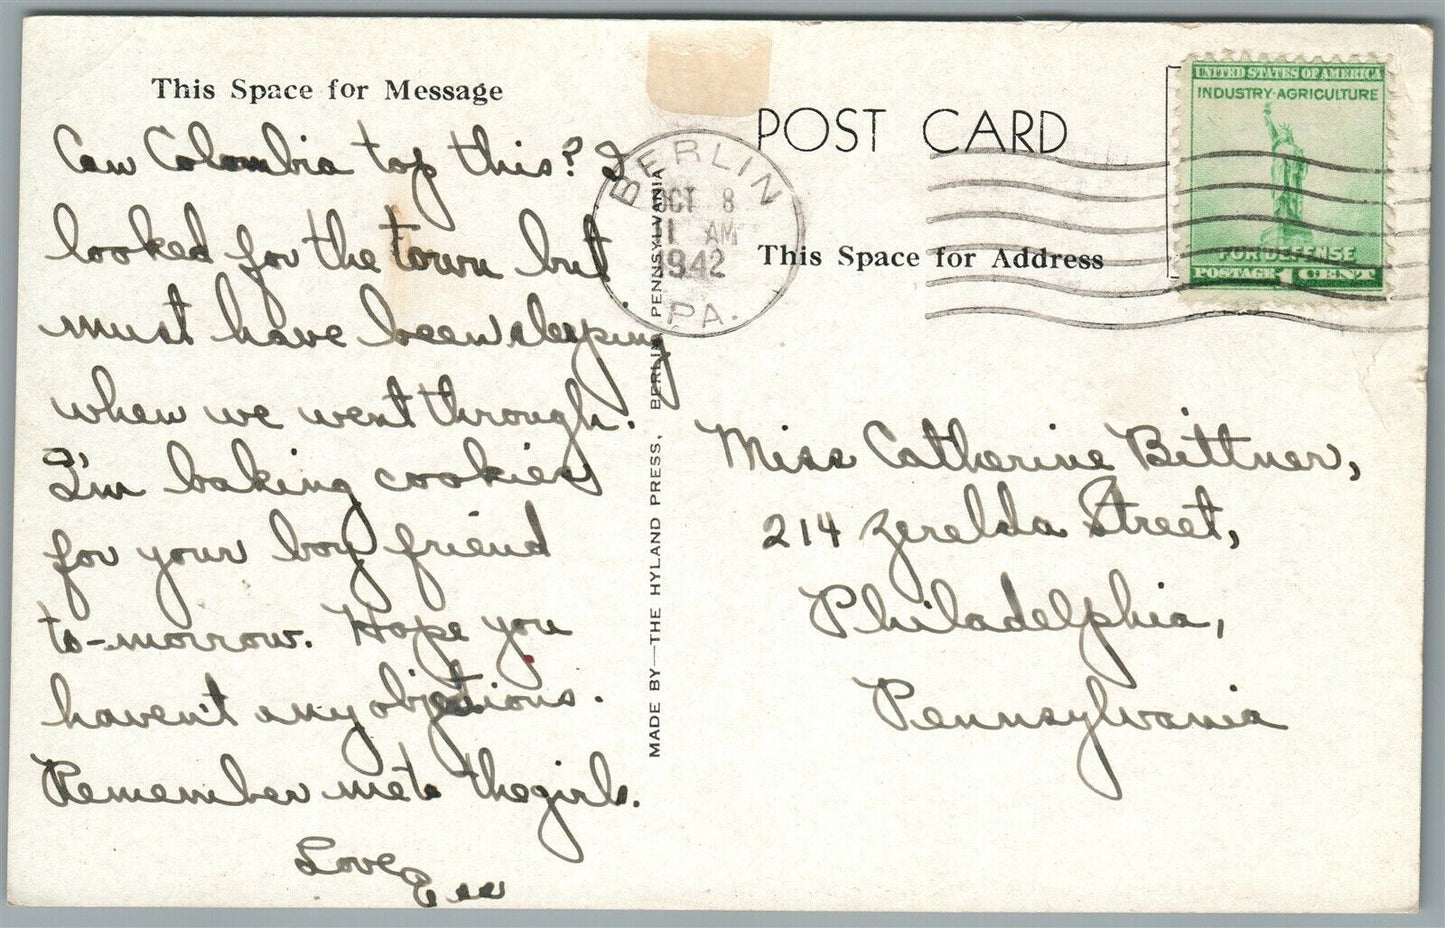 This Space for Message
Can Colombia top this? I
looked for the town but
must have been sleeping
when we went through.
I'm baking cookies
for your boy friend
to-morrow. Hope you
haven't any objections.
Remember me to the girls.
Love
MADE BY—THE HYLAND PRESS, BERLIN, PENNSYLVANIA
BERLIN
OCT 8
AM
1942
PA.
POST CARD
This Space for Address
UNITED STATES OF AMERICA
INDUSTRY·AGRICULTURE
FOR DEFENSE
POSTAGE 1 CENT
Miss Catherine Bittner,
214 Zerelda Street,
Philadelphia,
Pennsylvania